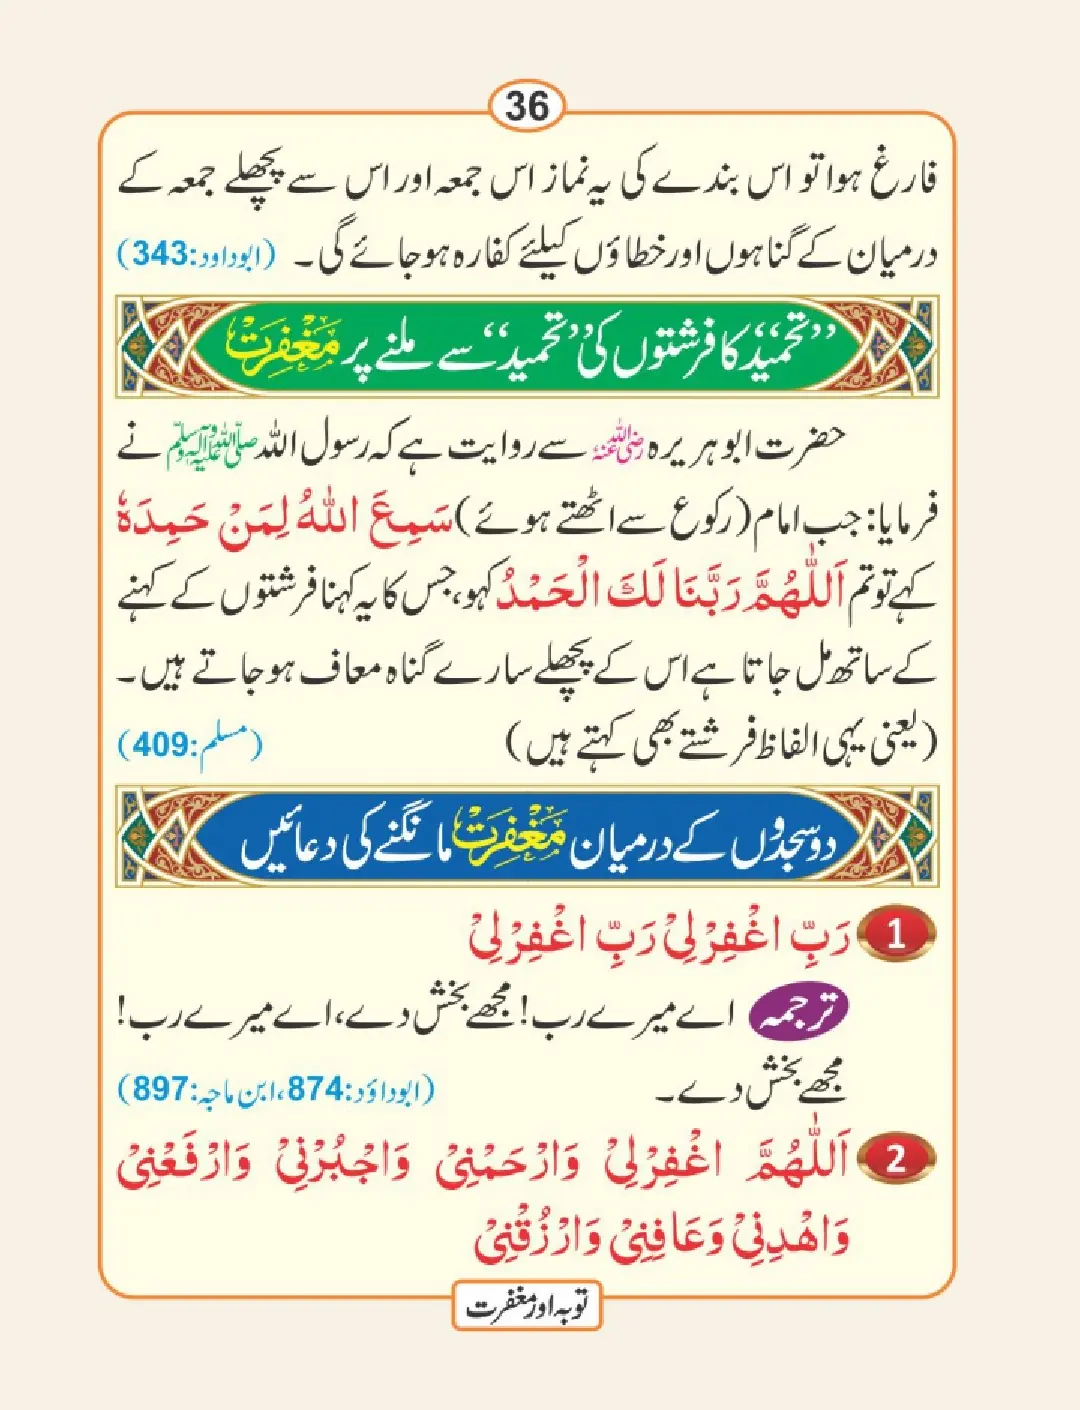 36
فارغ ہوا تو اس بندے کی یہ نماز اس جمعہ اور اس سے پچھلے جمعہ کے
درمیان کے گناہوں اور خطاؤں کیلئے کفارہ ہو جائے گی۔ (ابوداود:343)
”تحمید“ کا فرشتوں کی ”تحمید“ سے ملنے پر مَغْفِرَتْ
حضرت ابو ہریرہ رضی اللہ عنہ سے روایت ہے کہ رسول اللہ صلی اللہ علیہ وآلہ وسلم نے
فرمایا: جب امام (رکوع سے اٹھتے ہوئے) سَمِعَ اللهُ لِمَنْ حَمِدَهٗ
کہے تو تم اَللّٰهُمَّ رَبَّنَا لَكَ الْحَمْدُ کہو، جس کا یہ کہنا فرشتوں کے کہنے
کے ساتھ مل جاتا ہے اس کے پچھلے سارے گناہ معاف ہو جاتے ہیں۔
(یعنی یہی الفاظ فرشتے بھی کہتے ہیں) (مسلم:409)
دو سجدوں کے درمیان مَغْفِرَتْ مانگنے کی دعائیں
1 رَبِّ اغْفِرْ لِیْ رَبِّ اغْفِرْ لِیْ
ترجمہ اے میرے رب! مجھے بخش دے، اے میرے رب!
مجھے بخش دے۔ (ابوداؤد:874، ابن ماجہ:897)
2 اَللّٰهُمَّ اغْفِرْ لِیْ وَارْحَمْنِیْ وَاجْبُرْنِیْ وَارْفَعْنِیْ
وَاهْدِنِیْ وَعَافِنِیْ وَارْزُقْنِیْ
توبہ اور مغفرت